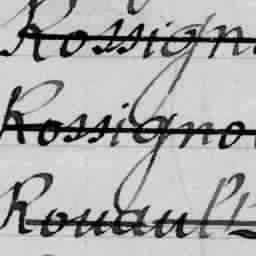 Rossign
Rossigno
Rouault